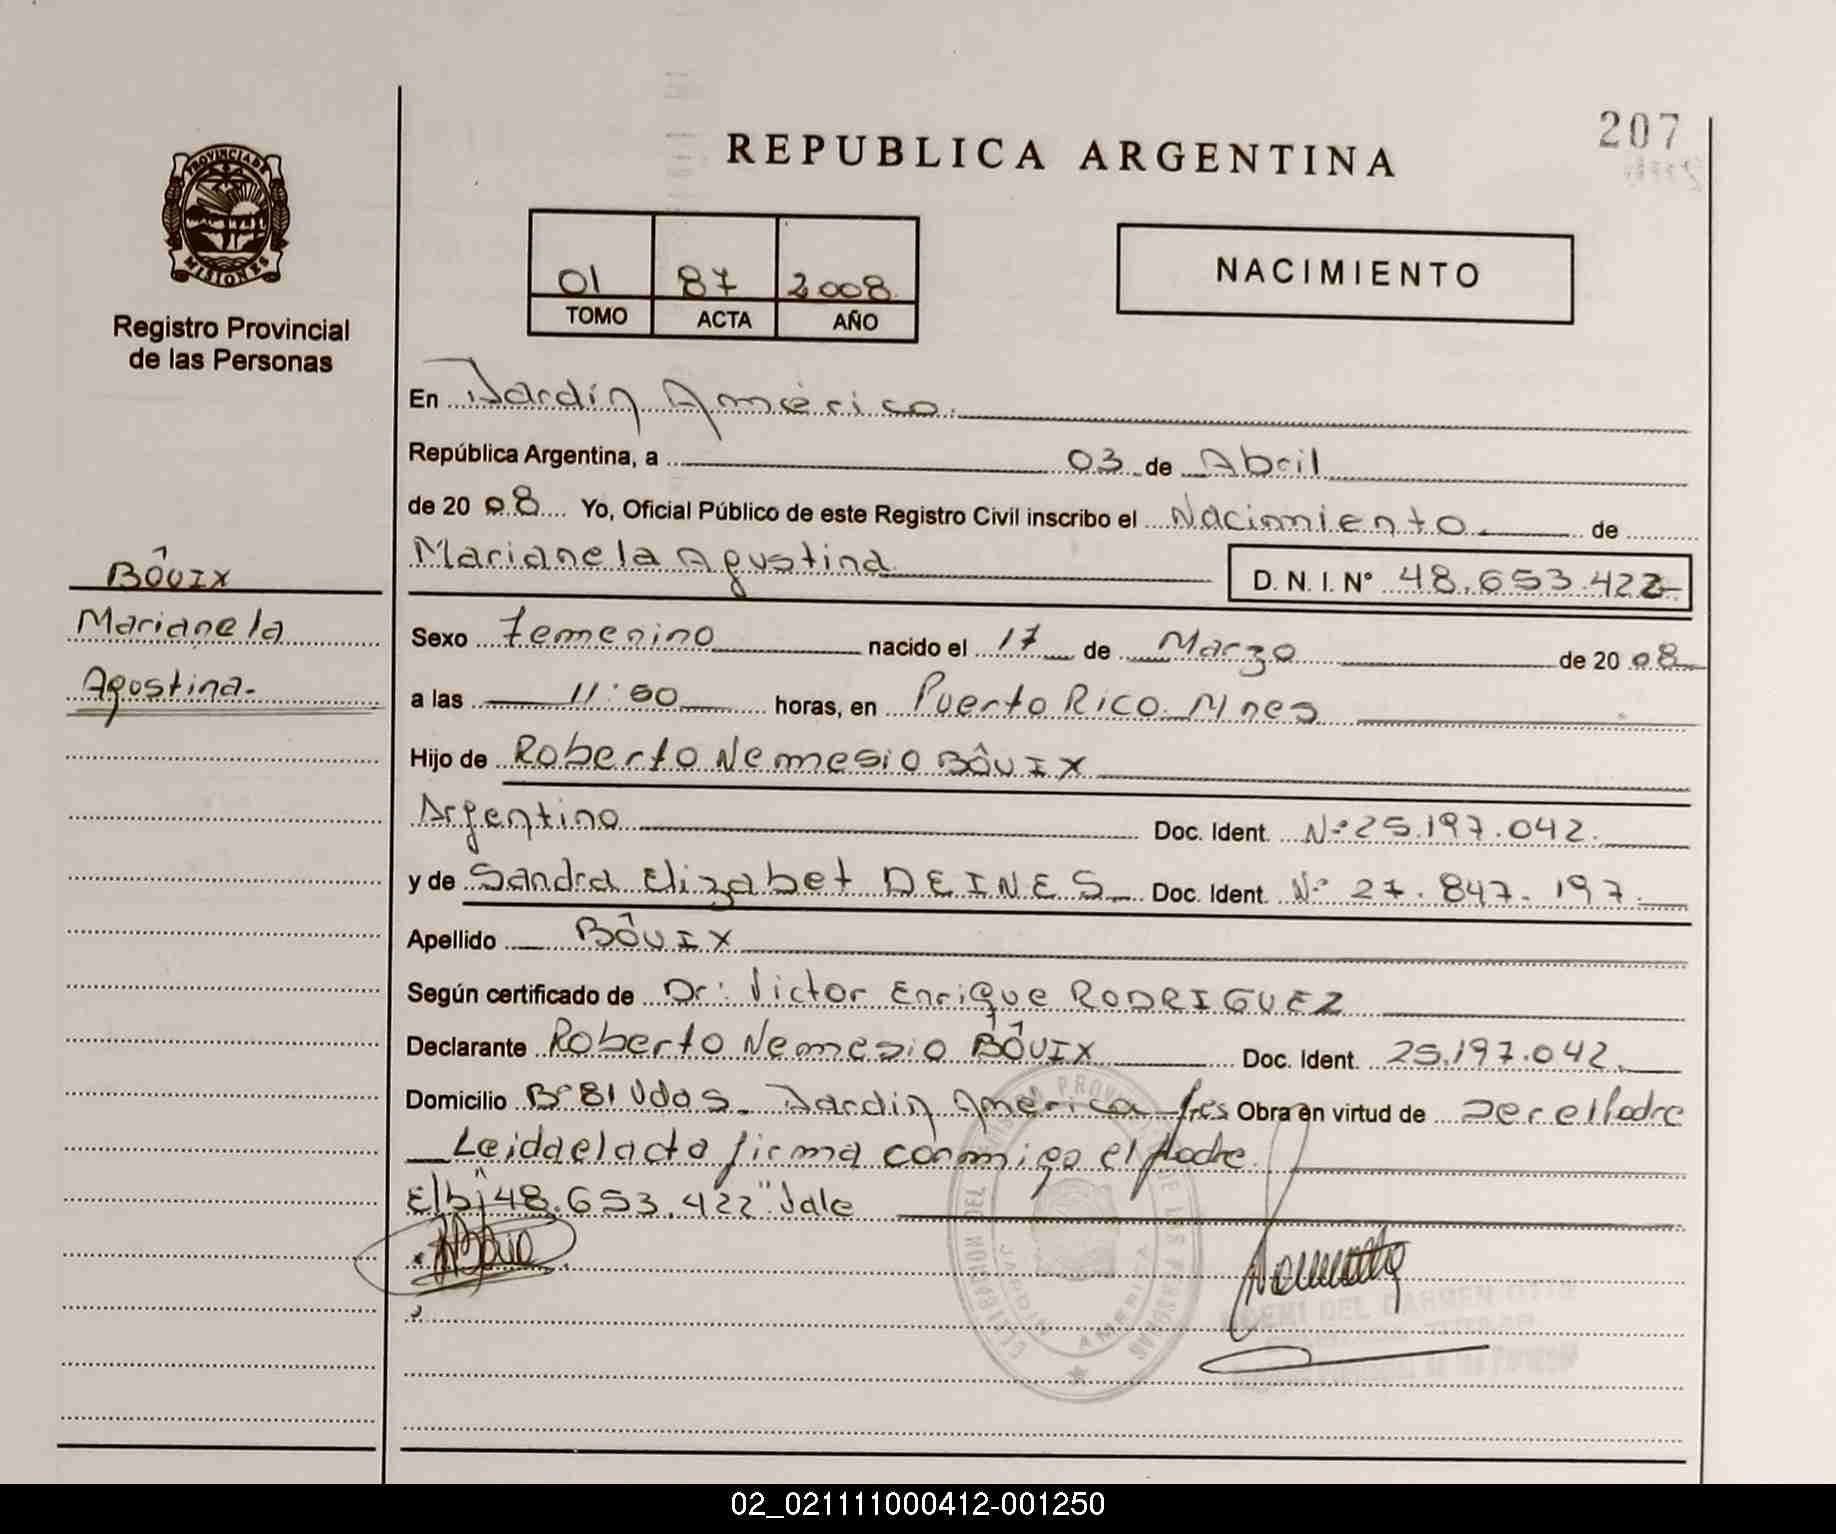 207
REPUBLICA ARGENTINA
PROVINCIA DE
MISIONES
Registro Provincial
de las Personas
01 87 2008
TOMO ACTA AÑO
NACIMIENTO
En Jardín América
República Argentina, a 03 de Abril
de 20 08 Yo, Oficial Público de este Registro Civil inscribo el Nacimiento de
Marianela Agustina D. N. I. N° 48.653.422
BÔUIX
Marianela
Agostina.
Sexo Femenino nacido el 17 de Marzo de 20 08
a las 11:50 horas, en Puerto Rico Mnes
Hijo de Roberto Nemesio BÔUIX
Argentino Doc. Ident. N° 25.197.042.
y de Sandra Elizabet DEINES Doc. Ident. N° 27.847.197.
Apellido BÔUIX
Según certificado de Dr: Victor Enrique RODRIGUEZ
Declarante Roberto Nemesio BÔUIX Doc. Ident. 25.197.042.
Domicilio B° 81 Vdas. Jardín América Obra en virtud de Ser el Padre
Leida el acta firma conmigo el Padre
"48.653.422" Vale
NOEMI DEL CARMEN
02_021111000412-001250